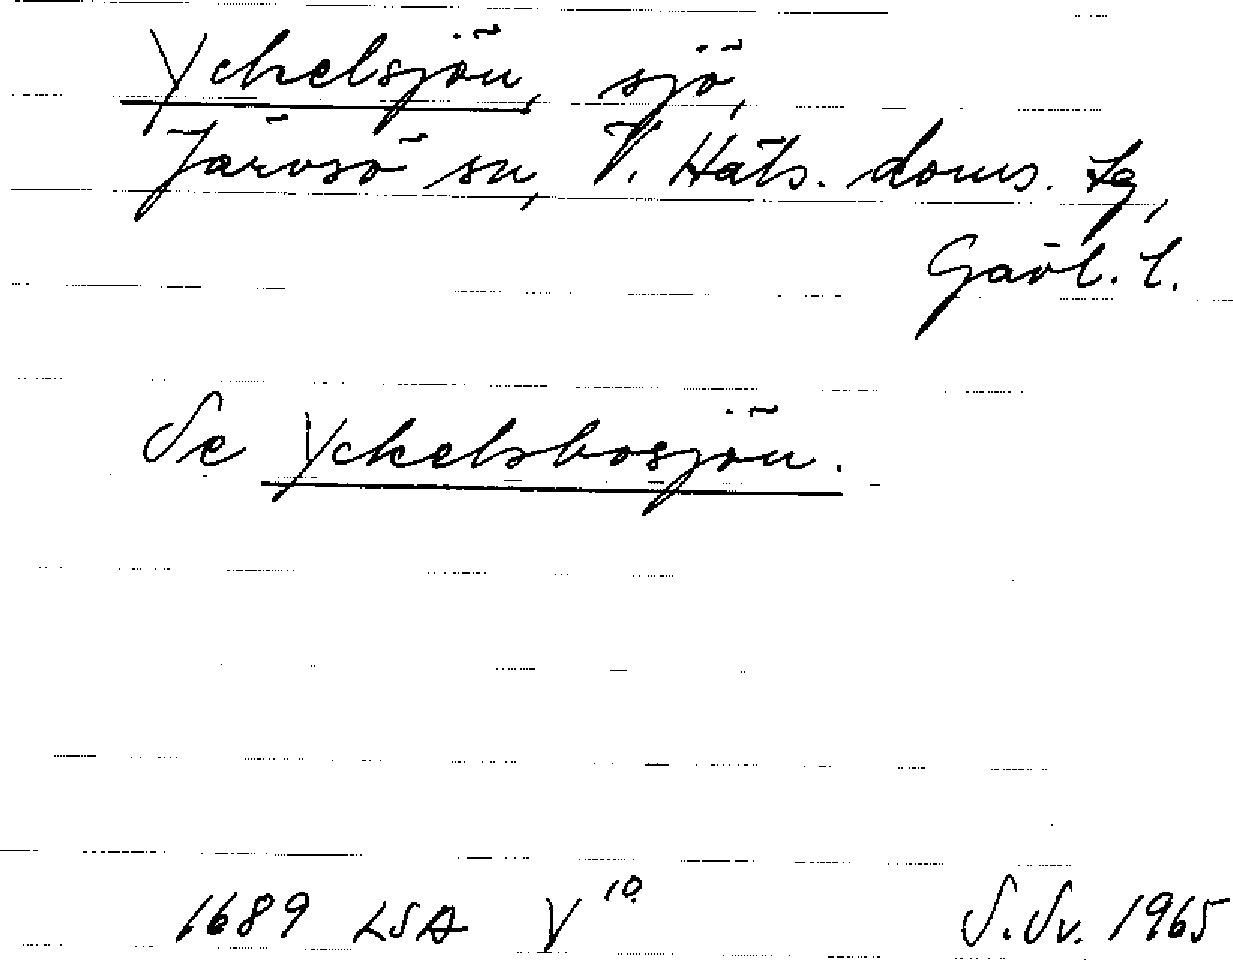 Yckelsjön, sjö,
Järvsö sn, V. Häls. doms. tg,
Gävl. l.
Se Yckelsbosjön.
1689 LSA Y 10
S.Sv. 1965